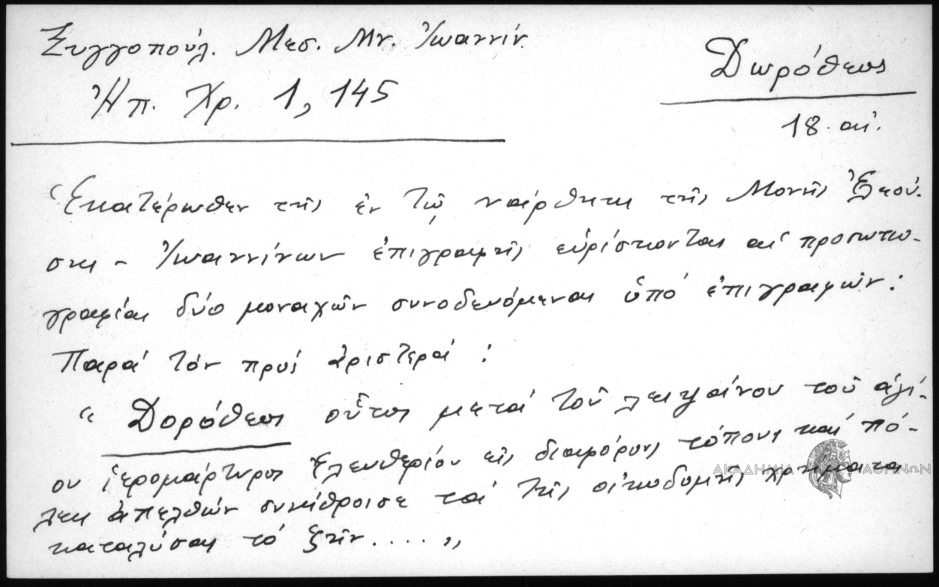 Ξυγγοπούλ. Μεσ. Μν. Ἰωαννίν.
Ἠπ. Χρ. 1, 145
Δωρόθεος
18. αἰ.
Ἑκατέρωθεν τῆς ἐν τῷ νάρθηκι τῆς Μονῆς Ἐλεού-
σης - Ἰωαννίνων ἐπιγραφῆς εὑρίσκονται αἱ προσωπο-
γραφίαι δύο μοναχῶν συνοδευόμεναι ὑπό ἐπιγραφῶν:
Παρά τόν πρός ἀριστερά :
" Δορόθεος οὗτος μετά τοῦ λειψάνου τοῦ ἁγί-
ου ἱερομάρτυρος Ἐλευθερίου εἰς διαφόρους τόπους καί πό-
λεις ἀπελθών συνήθροισε τά τῆς οἰκοδομῆς χρήματα
καταλύσας τό ζῆν .... "
ΑΚΑΔΗΜΙΑ ΑΘΗΝΩΝ